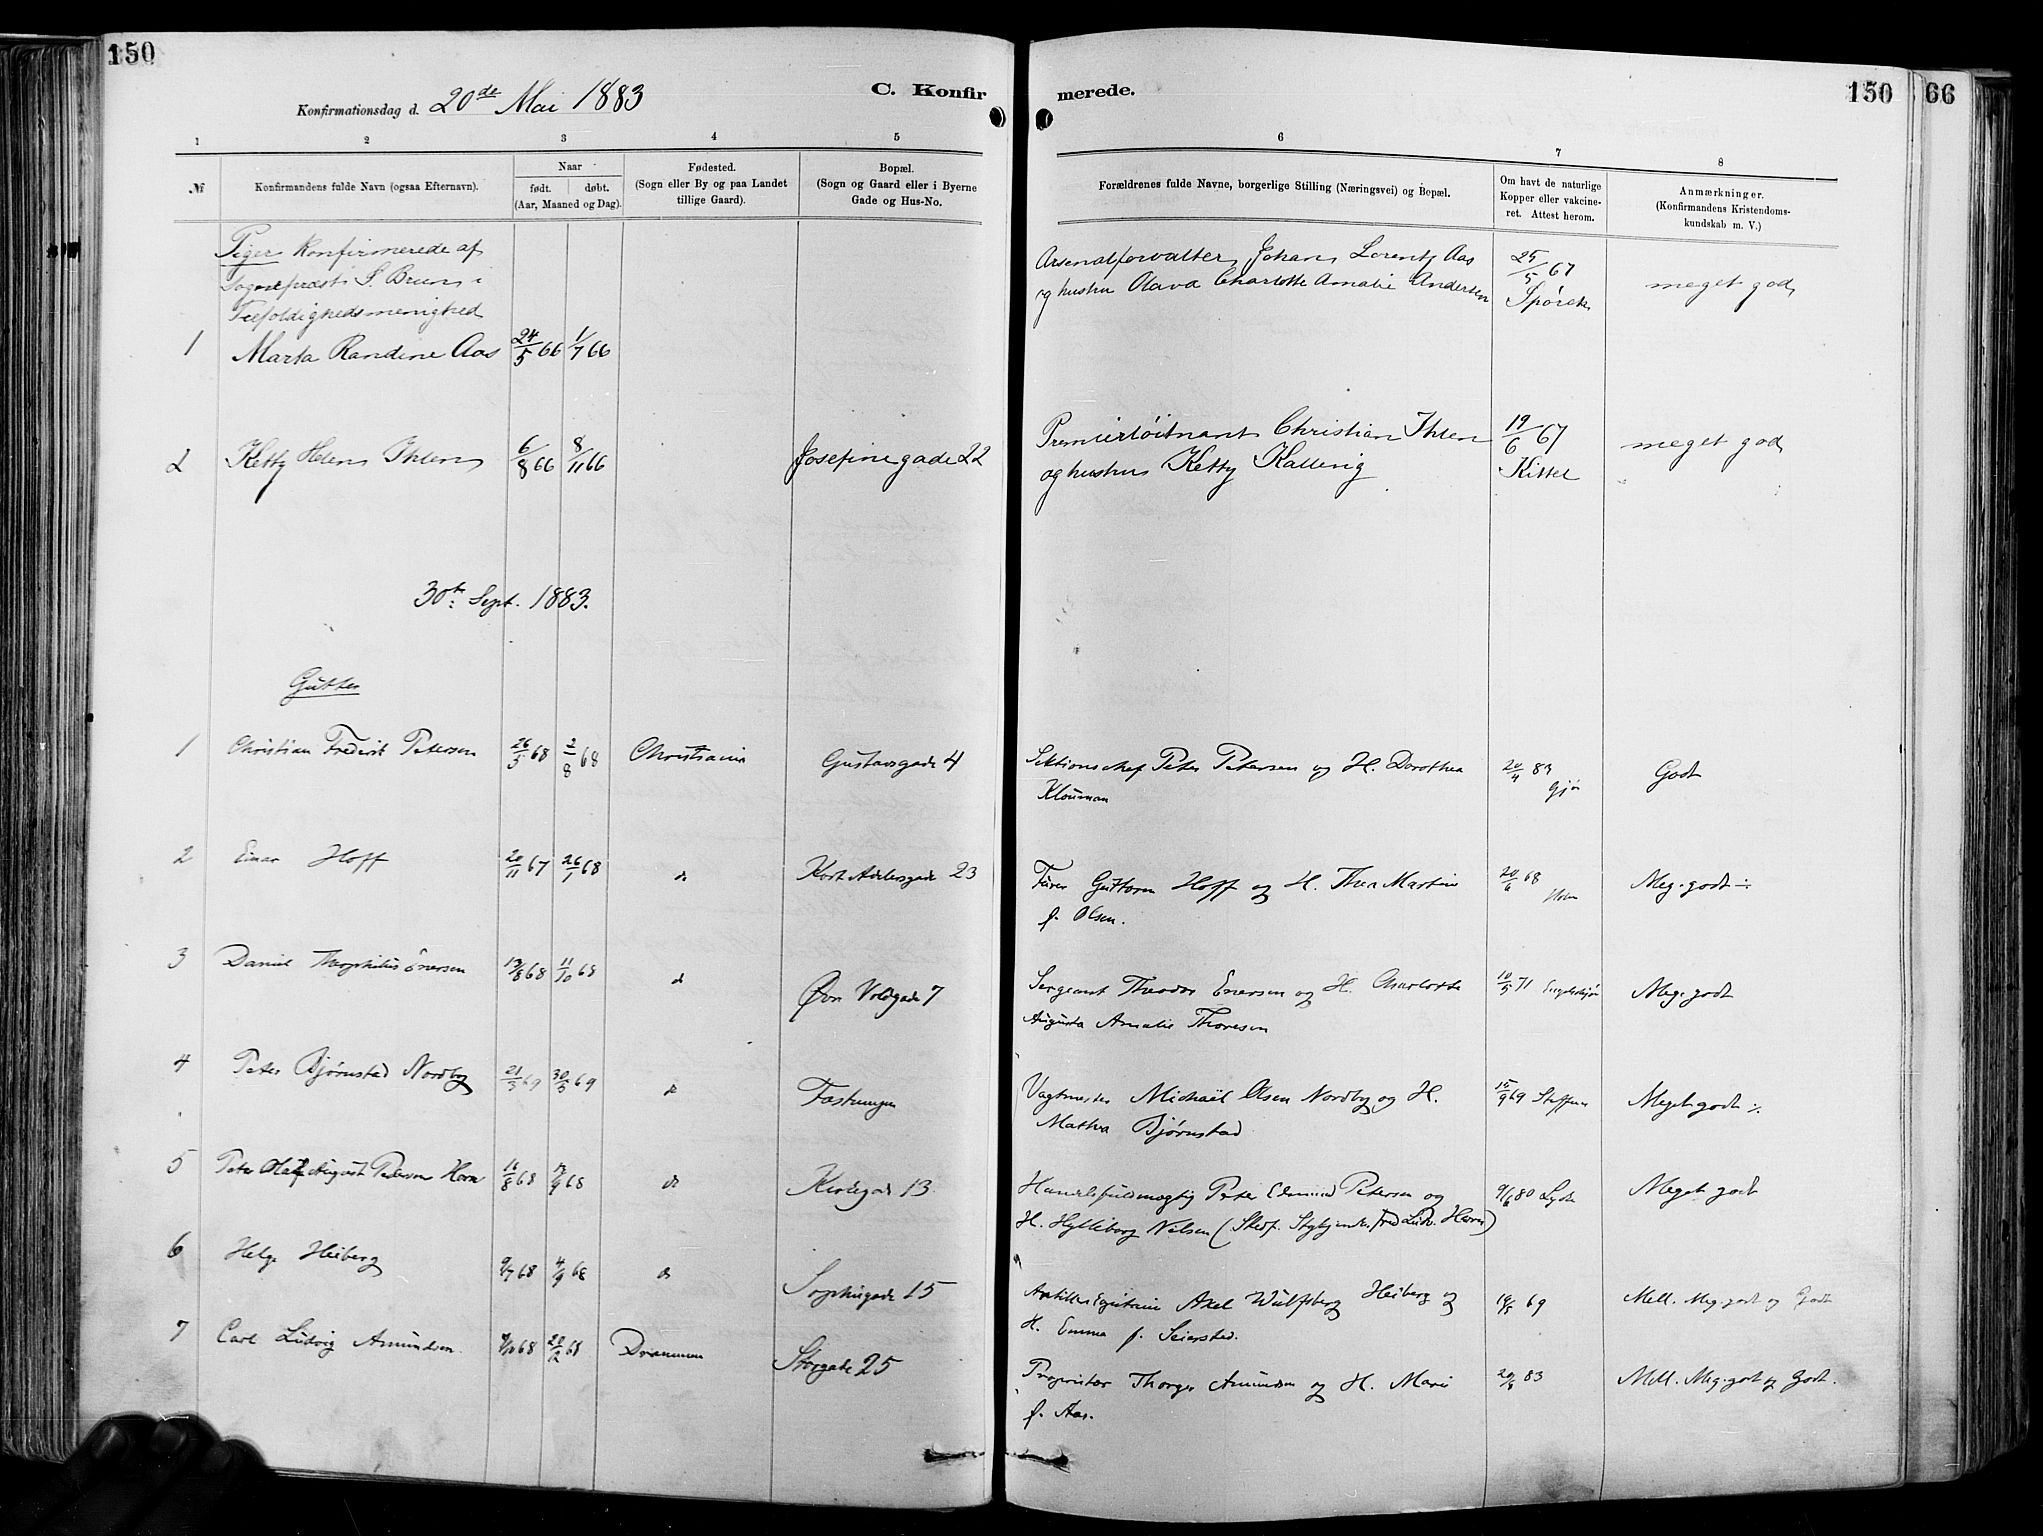 150
Konfirmationsdag d. 20de Mai 1883
C. Konfir
merede.
150
66
1 2 3 4 5 6 7 8
№
Konfirmandens fulde Navn (ogsaa Efternavn).
Naar
født. døbt.
(Aar, Maaned og Dag).
Fødested.
(Sogn eller By og paa Landet
tillige Gaard).
Bopæl.
(Sogn og Gaard eller i Byerne
Gade og Hus-No.
Forældrenes fulde Navne, borgerlige Stilling (Næringsvei) og Bopæl.
Om havt de naturlige
Kopper eller vakcine-
ret. Attest herom.
Anmærkninger.
(Konfirmandens Kristendoms-
kundskab m. V.)
Piger konfirmerede af
Sognepræst S. Bruun i
Trefoldighedsmenighed
1 Marta Randine Aas 24/5 66 1/7 66
Arsenalforvalter Johan Lorentz Aas
og hustru Olava Charlotte Amalie Andersen
25/5 67
Spørck
meget god
2 Ketty Helene Ihlen 6/8 66 8/11 66 Josefinegade 22
Premierløitnant Christian Ihlen
og hustru Ketty Kallevig
19/6 67
Kittel
meget god
30te Sept. 1883.
Gutter
1 Christian Frederik Petersen 26/5 68 2/8 68 Christiania Gustavsgade 4
Sektionschef Peter Petersen og H. Dorothea
Klouman
20/4 83
Gjør
Godt
2 Einar Hoff 20/11 67 26/1 68 do Kort Adelersgade 23
Guttorm Hoff og H. Thea Martine
f. Olsen.
20/6 68
Holm
Meg. godt ÷
3 Daniel Theophilus Enersen 13/8 68 11/10 68 do Øvre Voldgade 7
Sergeant Theodor Enersen og H. Charlotte
Augusta Amalie Thoresen
10/5 71
Meg. godt
4 Peter Bjørnstad Nordby 21/3 69 30/5 69 do Fæstningen
Vagtmester Michaël Olsen Nordby og H.
Mathea Bjørnstad
15/9 69 Steffens
Meget godt ÷
5 Peter Olaf August Petersen Horn 16/8 68 13/9 68 do Kirkegade 13
Handelsfuldmægtig Peter Edmund Petersen og
H. Hylleborg Nelsen (Stedf. Fred. Ludv. Horn)
9/6 80
Meget godt
6 Helge Heiberg 9/7 68 4/9 68 do Sophiegade 15
Artillerikaptein Axel Wulfsberg Heiberg og
H. Emma f. Seiersted.
69
Mell. Meg. godt og Godt
7 Carl Ludvig Amundsen 68 20/12 68 Drammen Storgade 25
Proprietær Thorger Amundsen og H. Marie
f. Aas.
83
Mell. Meg. godt og Godt.